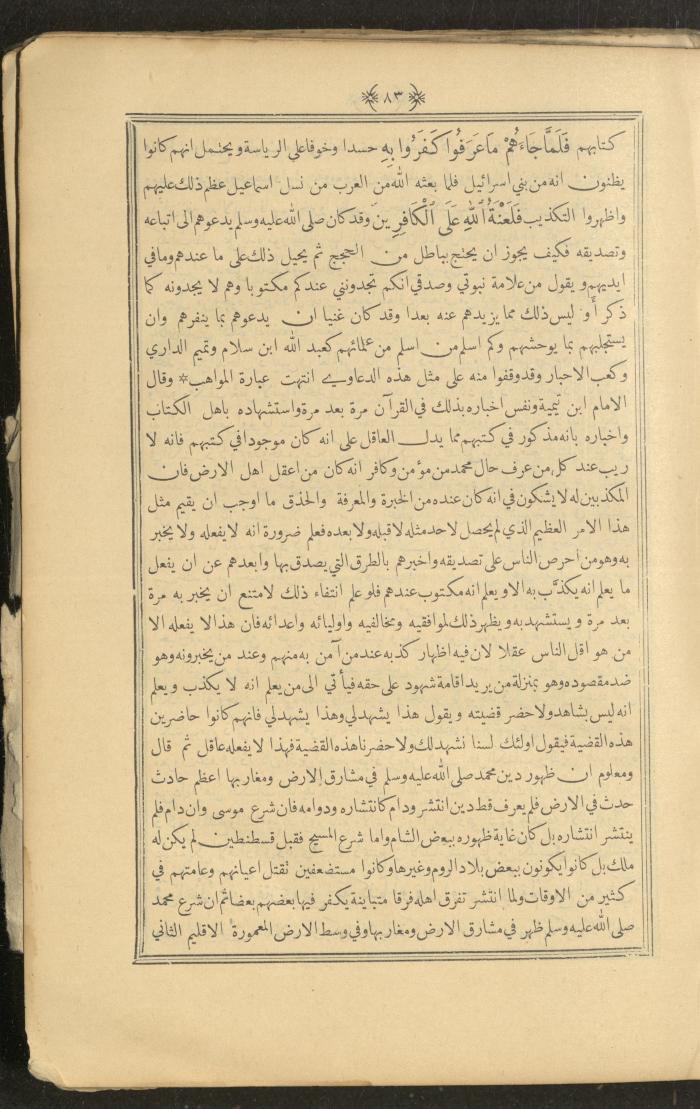 ٨٣
كتابهم فَلَمَّا جَاءَهُمْ مَا عَرَفُوا كَفَرُوا بِهِ حسدا وخوفا على الرياسة ويحتمل انهم كانوا
يظنون انه من بني اسرائيل فلما بعثه الله من العرب من نسل اسماعيل عظم ذلك عليهم
واظهروا التكذيب فَلَعْنَةُ ٱللهِ عَلَى ٱلْكَافِرِينَ وقد كان صلى الله عليه وسلم يدعوهم الى اتباعه
وتصديقه فكيف يجوز ان يحتج بباطل من الحجج ثم يحيل ذلك على ما عندهم وما في
ايديهم ويقول من علامة نبوتي وصدقي انكم تجدونني عندكم مكتوبا وهم لا يجدونه كما
ذكر أَوَ ليس ذلك مما يزيدهم عنه بعدا وقد كان غنيا ان يدعوهم بما ينفرهم وان
يستجلبهم بما يوحشهم وكم اسلم من اسلم من علمائهم كعبد الله ابن سلام وتميم الداري
وكعب الاحبار وقد وقفوا منه على مثل هذه الدعاوي انتهت عبارة المواهب * وقال
الامام ابن تيمية ونفس اخباره بذلك في القرآن مرة بعد مرة واستشهاده باهل الكتاب
واخباره بانه مذكور في كتبهم مما يدل العاقل على انه كان موجودا في كتبهم فانه لا
ريب عند كل من عرف حال محمد من مؤمن وكافر انه كان من اعقل اهل الارض فان
المكذبين له لا يشكون في انه كان عنده من الخبرة والمعرفة والحذق ما اوجب ان يقيم مثل
هذا الامر العظيم الذي لم يحصل لاحد مثله لا قبله ولا بعده فعلم ضرورة انه لا يفعله ولا يخبر
به وهو من احرص الناس على تصديقه واخبرهم بالطرق التي يصدق بها وابعدهم عن ان يفعل
ما يعلم انه يكذَّب به الا ويعلم انه مكتوب عندهم فلو علم انتفاء ذلك لامتنع ان يخبر به مرة
بعد مرة ويستشهد به ويظهر ذلك لموافقيه ومخالفيه واوليائه واعدائه فان هذا لا يفعله الا
من هو اقل الناس عقلا لان فيه اظهار كذبه عند من آمن به منهم وعند من يخبرونه وهو
ضد مقصوده وهو بمنزلة من يريد اقامة شهود على حقه فيأتي الى من يعلم انه لا يكذب ويعلم
انه ليس بشاهد ولا حضر قضيته ويقول هذا يشهد لي وهذا يشهد لي فانهم كانوا حاضرين
هذه القضية فيقول اولئك لسنا نشهد لك ولا حضرنا هذه القضية فهذا لا يفعله عاقل ثم قال
ومعلوم ان ظهور دين محمد صلى الله عليه وسلم في مشارق الارض ومغاربها اعظم حادث
حدث في الارض فلم يعرف قط دين انتشر ودام كانتشاره ودوامه فان شرع موسى وان دام فلم
ينتشر انتشاره بل كان غاية ظهوره ببعض الشام واما شرع المسيح فقبل قسطنطين لم يكن له
ملك بل كانوا يكونون ببعض بلاد الروم وغيرها وكانوا مستضعفين تقتل اعيانهم وعامتهم في
كثير من الاوقات ولما انتشر تفرق اهله فرقا متباينة يكفر فيها بعضهم بعضا ثم ان شرع محمد
صلى الله عليه وسلم ظهر في مشارق الارض ومغاربها وفي وسط الارض المعمورة الاقليم الثاني